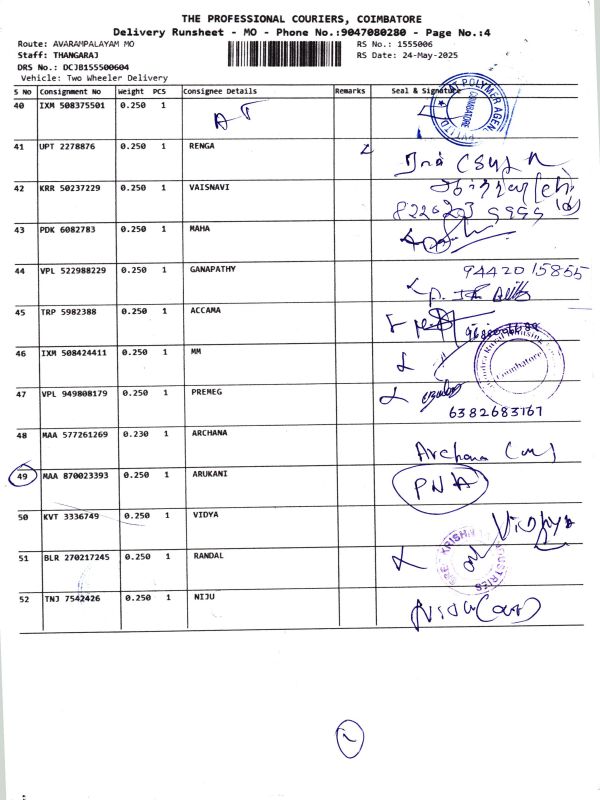 THE PROFESSIONAL COURIERS, COIMBATORE
Delivery Runsheet - MO - Phone No.:9047080280 - Page No.:4
Route: AVARAMPALAYAM MO
RS No.: 1555006
Staff: THANGARAJ
RS Date: 24-May-2025
DRS No.: DCJB155500604
Vehicle: Two Wheeler Delivery
S No Consignment No Weight PCS Consignee Details Remarks Seal & Signature
40 IXM 508375501 0.250 1
41 UPT 2278876 0.250 1 RENGA
42 KRR 50237229 0.250 1 VAISNAVI
43 PDK 6082783 0.250 1 MAHA
44 VPL 522988229 0.250 1 GANAPATHY 9442015855
45 TRP 5982388 0.250 1 ACCAMA
46 IXM 508424411 0.250 1 MM
Coimbatore
47 VPL 949808179 0.250 1 PREMEG
6382683167
48 MAA 577261269 0.230 1 ARCHANA Archana
49 MAA 870023393 0.250 1 ARUKANI PNA
50 KVT 3336749 0.250 1 VIDYA Vidhya
51 BLR 270217245 0.250 1 RANDAL
52 TNJ 7542426 0.250 1 NIJU